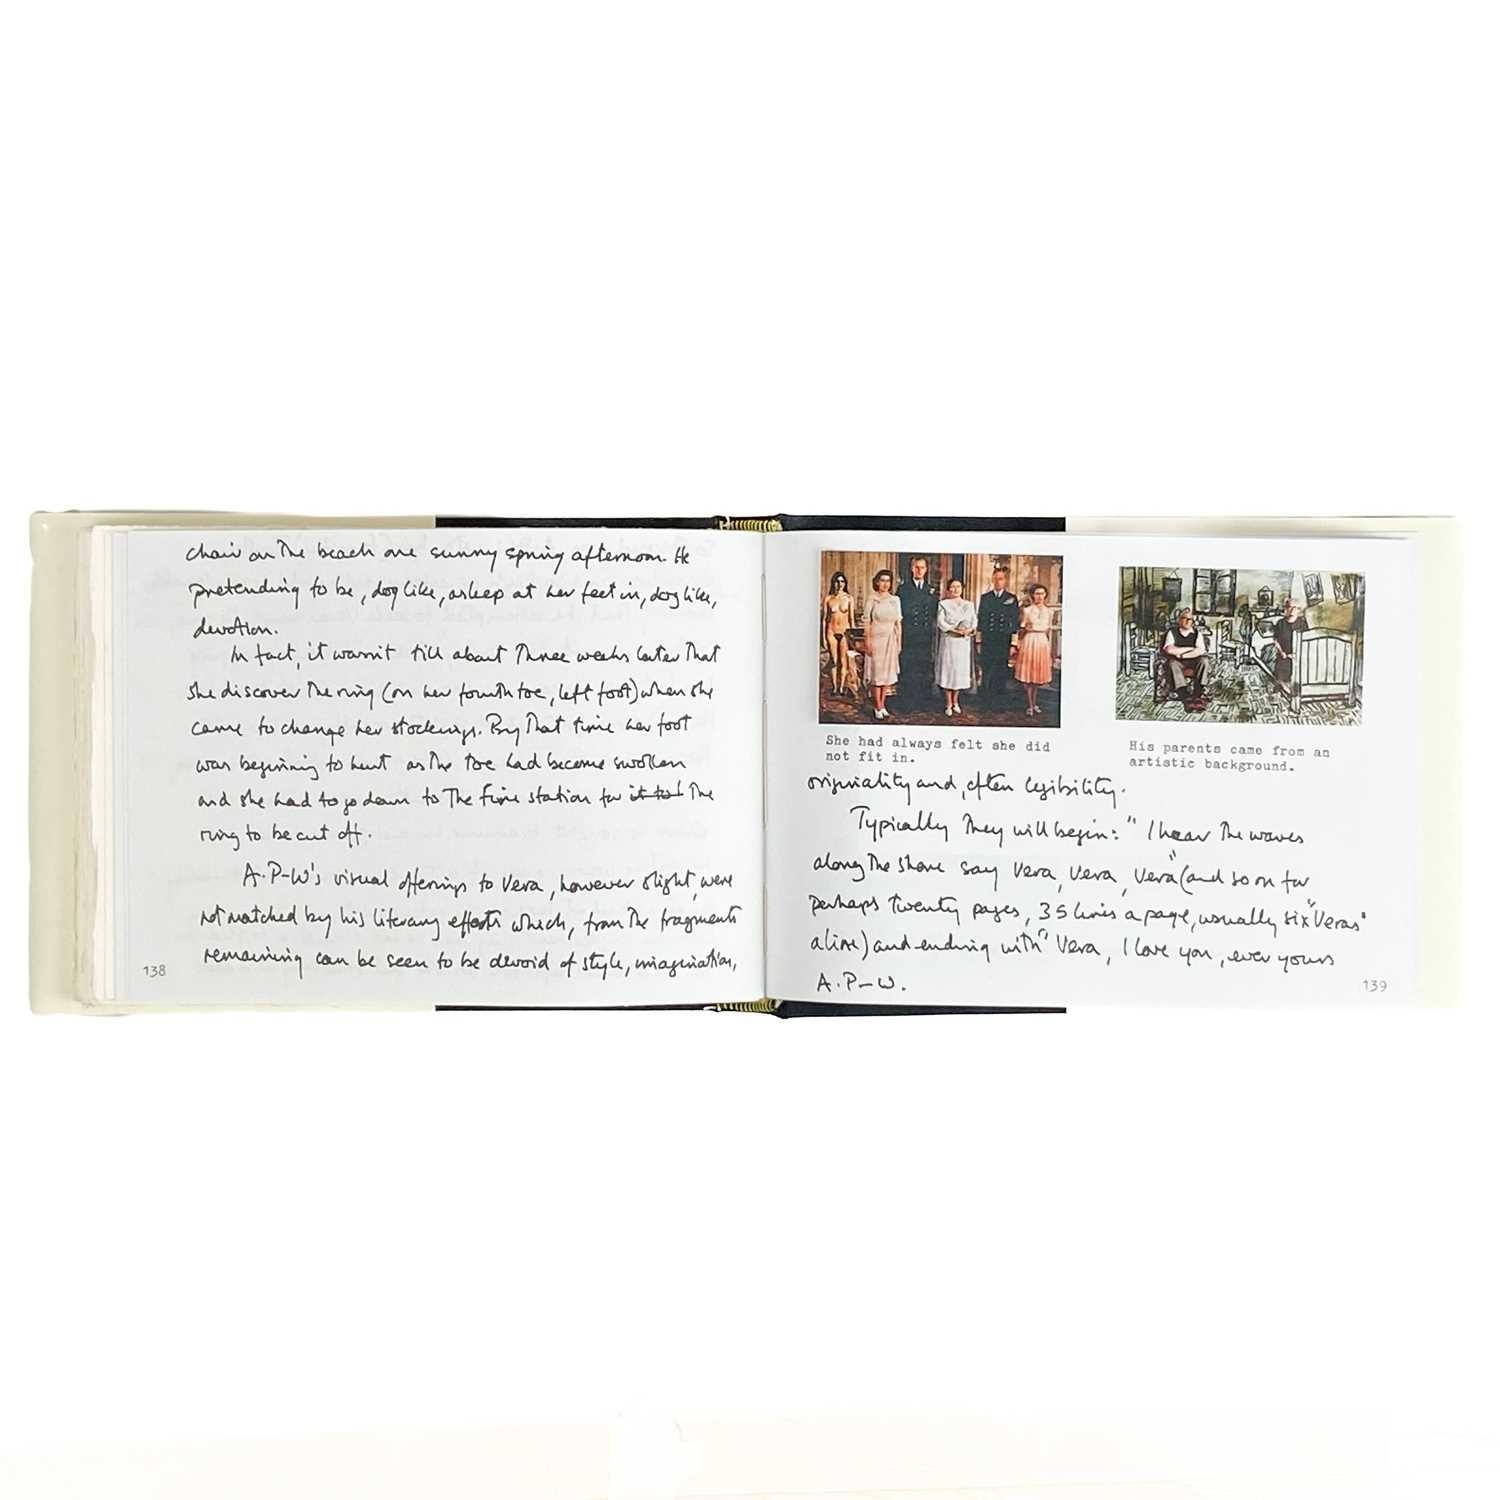 chair on the beach one sunny spring afternoon. He
pretending to be, dog like, asleep at her feet in, dog like,
devotion.
In fact, it wasn't till about three weeks later that
she discover the ring (on her fourth toe, left foot) when she
came to change her stockings. By that time her foot
was beginning to hurt as the toe had become swollen
and she had to go down to the fire station for it to! the
ring to be cut off.
A.P-W's visual offerings to Vera, however slight, were
not matched by his literary efforts which, from the fragments
remaining can be seen to be devoid of style, imagination,
138
She had always felt she did
not fit in.
His parents came from an
artistic background.
originality and, often legibility.
Typically they will begin: "I hear the waves
along the shore say Vera, Vera, Vera" (and so on for
perhaps twenty pages, 35 lines a page, usually six "Veras"
a line) and ending with "Vera, I love you, ever yours
A.P-W.
139